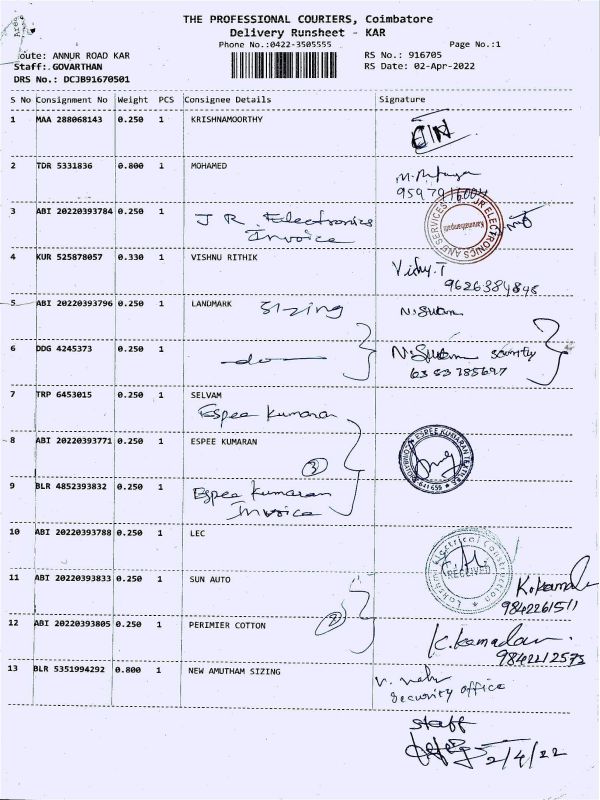 THE PROFESSIONAL COURIERS, Coimbatore
Delivery Runsheet - KAR
Phone No.:0422-3505555
Page No.:1
Route: ANNUR ROAD KAR
RS No.: 916705
Staff:.GOVARTHAN
RS Date: 02-Apr-2022
DRS No.: DCJB91670501
S No Consignment No Weight PCS Consignee Details Signature
1 MAA 288068143 0.250 1 KRISHNAMOORTHY
2 TDR 5331836 0.800 1 MOHAMED
3 ABI 20220393784 0.250 1 J R Electronics
Invoice
4 KUR 525878057 0.330 1 VISHNU RITHIK
Vidhy.T
9626384848
5 ABI 20220393796 0.250 1 LANDMARK Sizing
6 DDG 4245373 0.250 1 —do—
Security
63 83 785697
7 TRP 6453015 0.250 1 SELVAM
Espee Kumaran
8 ABI 20220393771 0.250 1 ESPEE KUMARAN
ESPEE KUMARAN
641 655
3
9 BLR 4852393832 0.250 1 Espee Kumaran
Invoice
10 ABI 20220393788 0.250 1 LEC
Electrical Construction
RECEIVED
11 ABI 20220393833 0.250 1 SUN AUTO
9842261511
12 ABI 20220393805 0.250 1 PERIMIER COTTON
2
9842212573
13 BLR 5351994292 0.800 1 NEW AMUTHAM SIZING
Security office
Staff
2/4/22